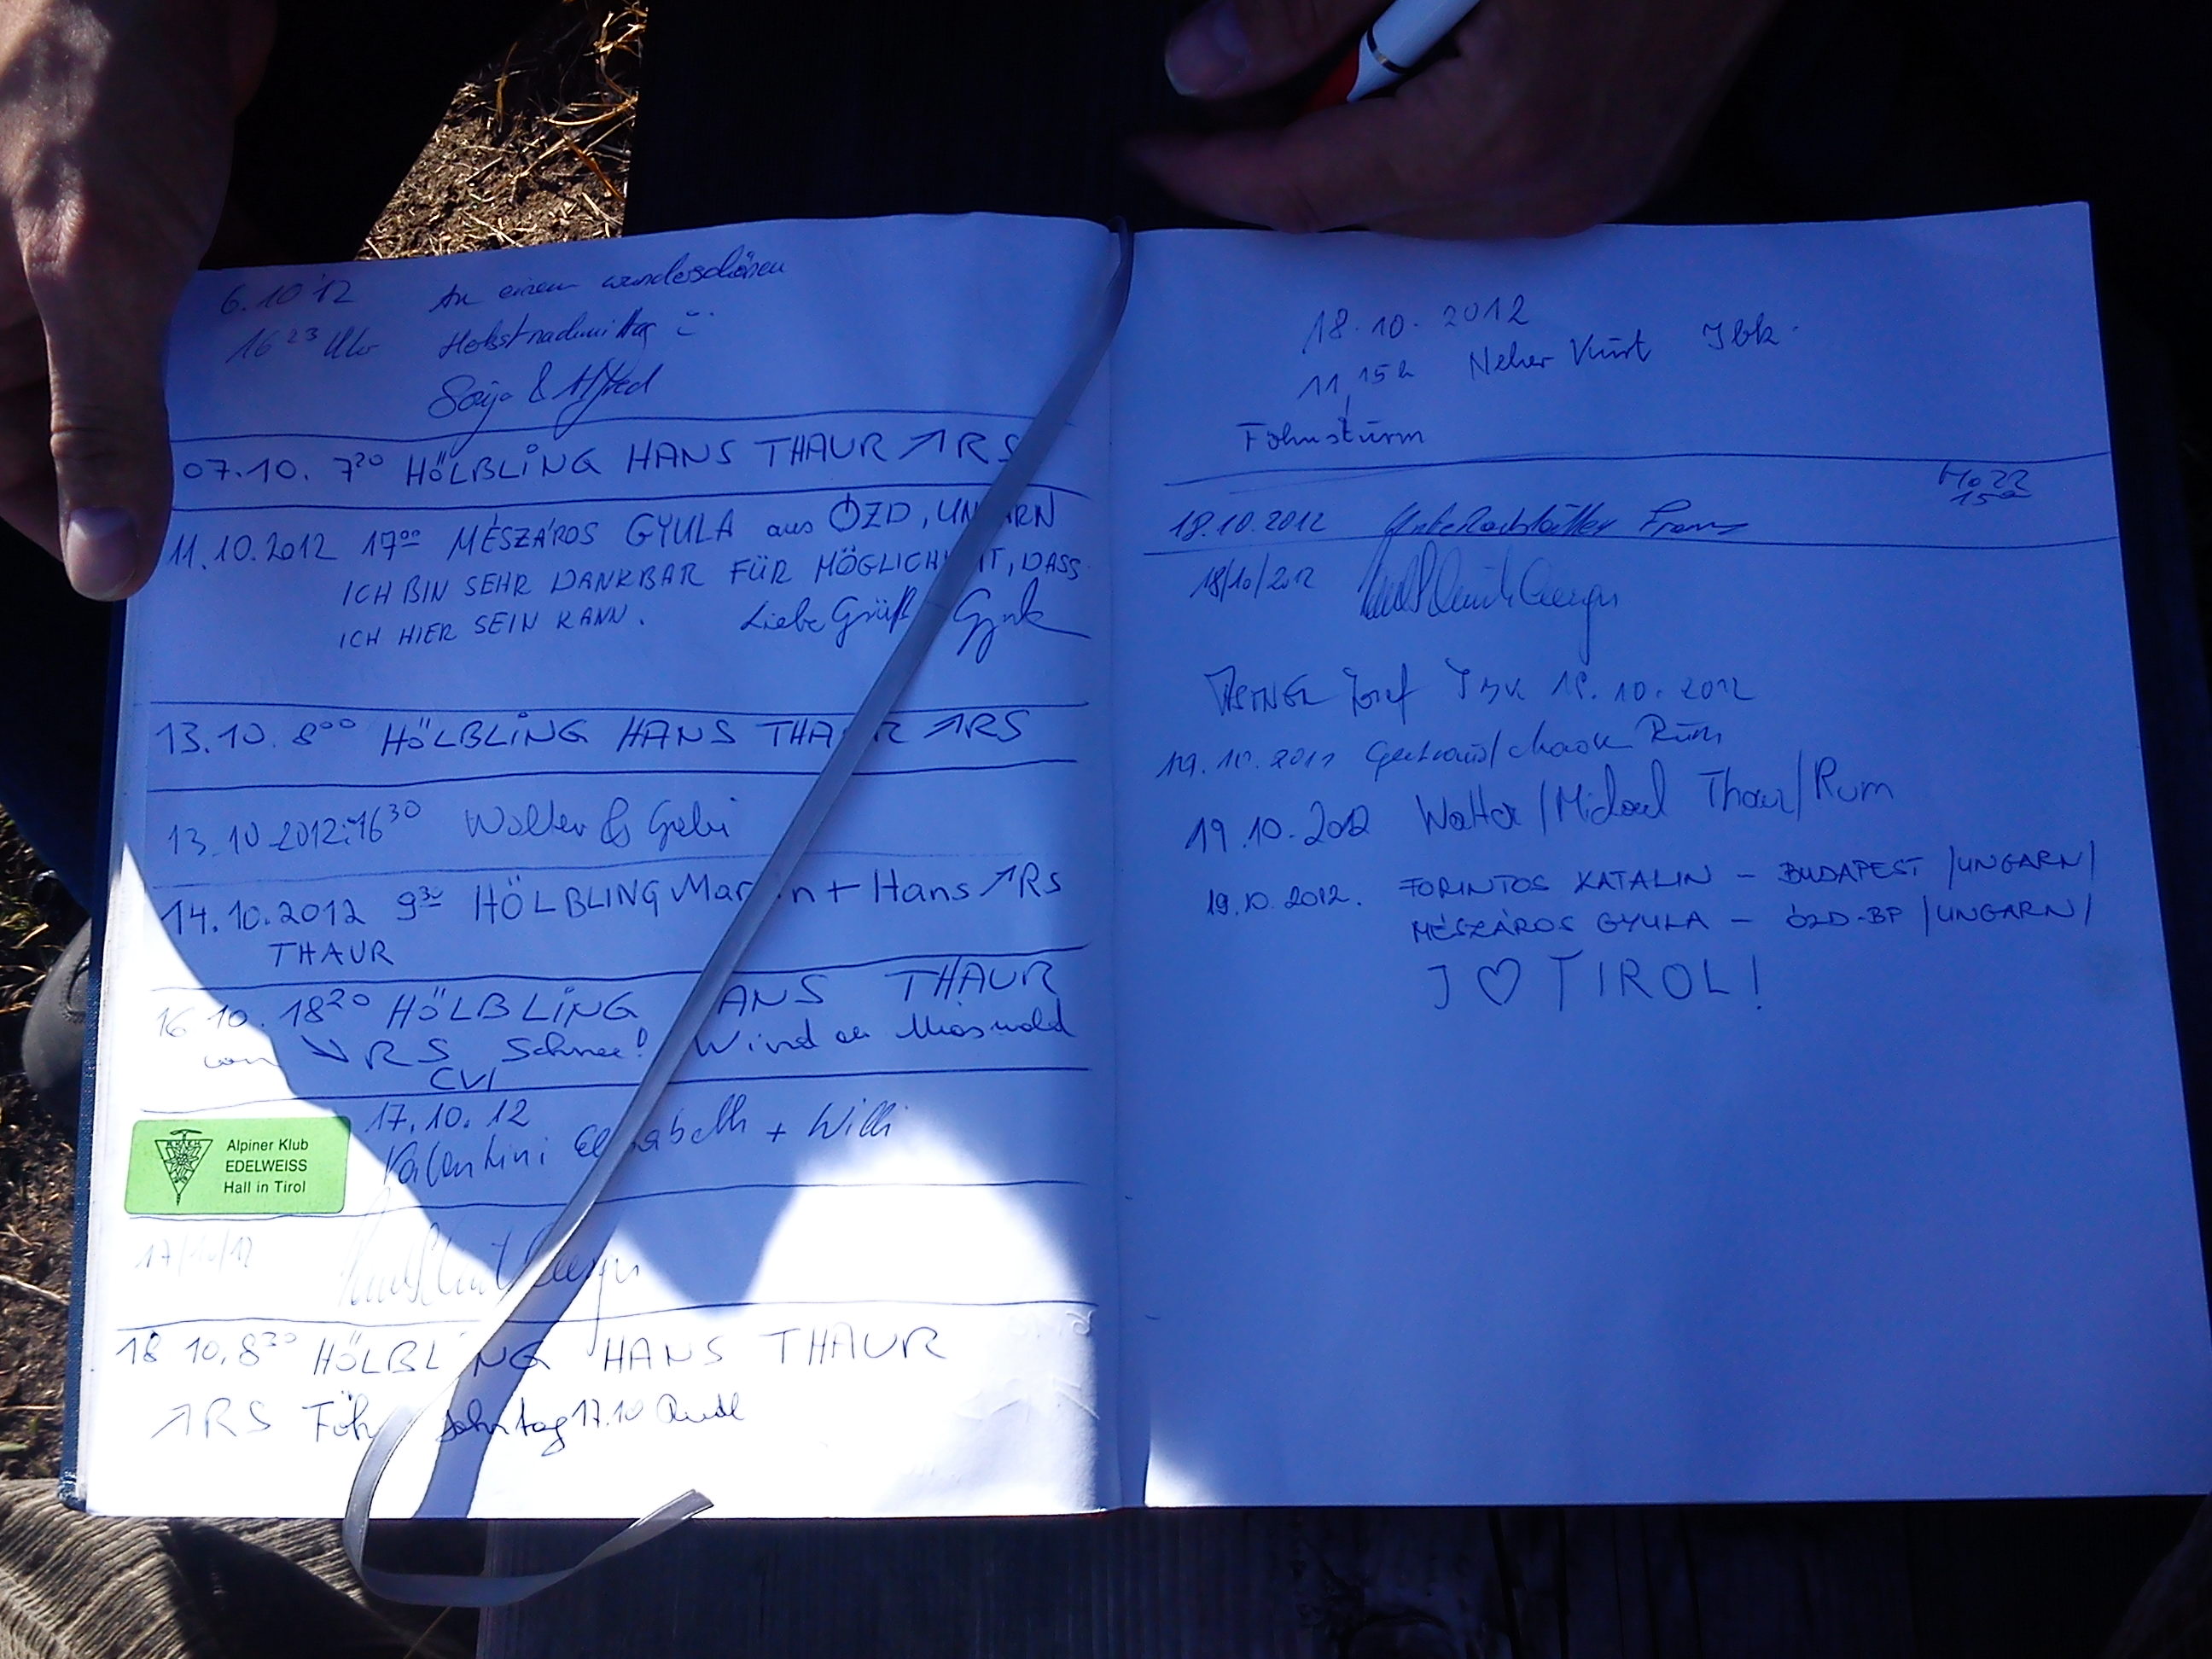 6.10.12 An einem wunderschönen
16 23 Uhr Herbstnachmittag
& Alfred
07.10. 7 20 HÖLBLING HANS THAUR ↗RS
11.10.2012 17 00 MÉSZÁROS GYULA aus ÓZD, UN ARN
ICH BIN SEHR DANKBAR FÜR MÖGLICH IT, DASS
ICH HIER SEIN KANN. Liebe Grüße
13.10. 8 00 HÖLBLING HANS THA R ↗RS
13.10.2012. 16 30 Walter & Gabi
14.10.2012 9 30 HÖLBLING Mar n + Hans ↗RS
THAUR
16 10. 18 20 HÖLBLING ANS THAUR
von ↘RS Schnee! Wind
CVI
17.10.12
Alpiner Klub
EDELWEISS
Hall in Tirol
Valentini El sabeth + Willi
17/10/12
18 10. 8 30 HÖLBL NG HANS THAUR
↗RS Föh 17.10
18.10.2012
11,15h Neher Kurt Ibk.
Föhnsturm
Mo 22
15
18.10.2012 Franz
18/10/2012
Josef Ibk 18.10.2012
19.10.2011 Rum
19.10.2012 Walter/Michael Thaur/Rum
19.10.2012. FORINTOS KATALIN – BUDAPEST /UNGARN/
MÉSZÁROS GYULA – ÓZD-BP /UNGARN/
I ♡ TIROL!